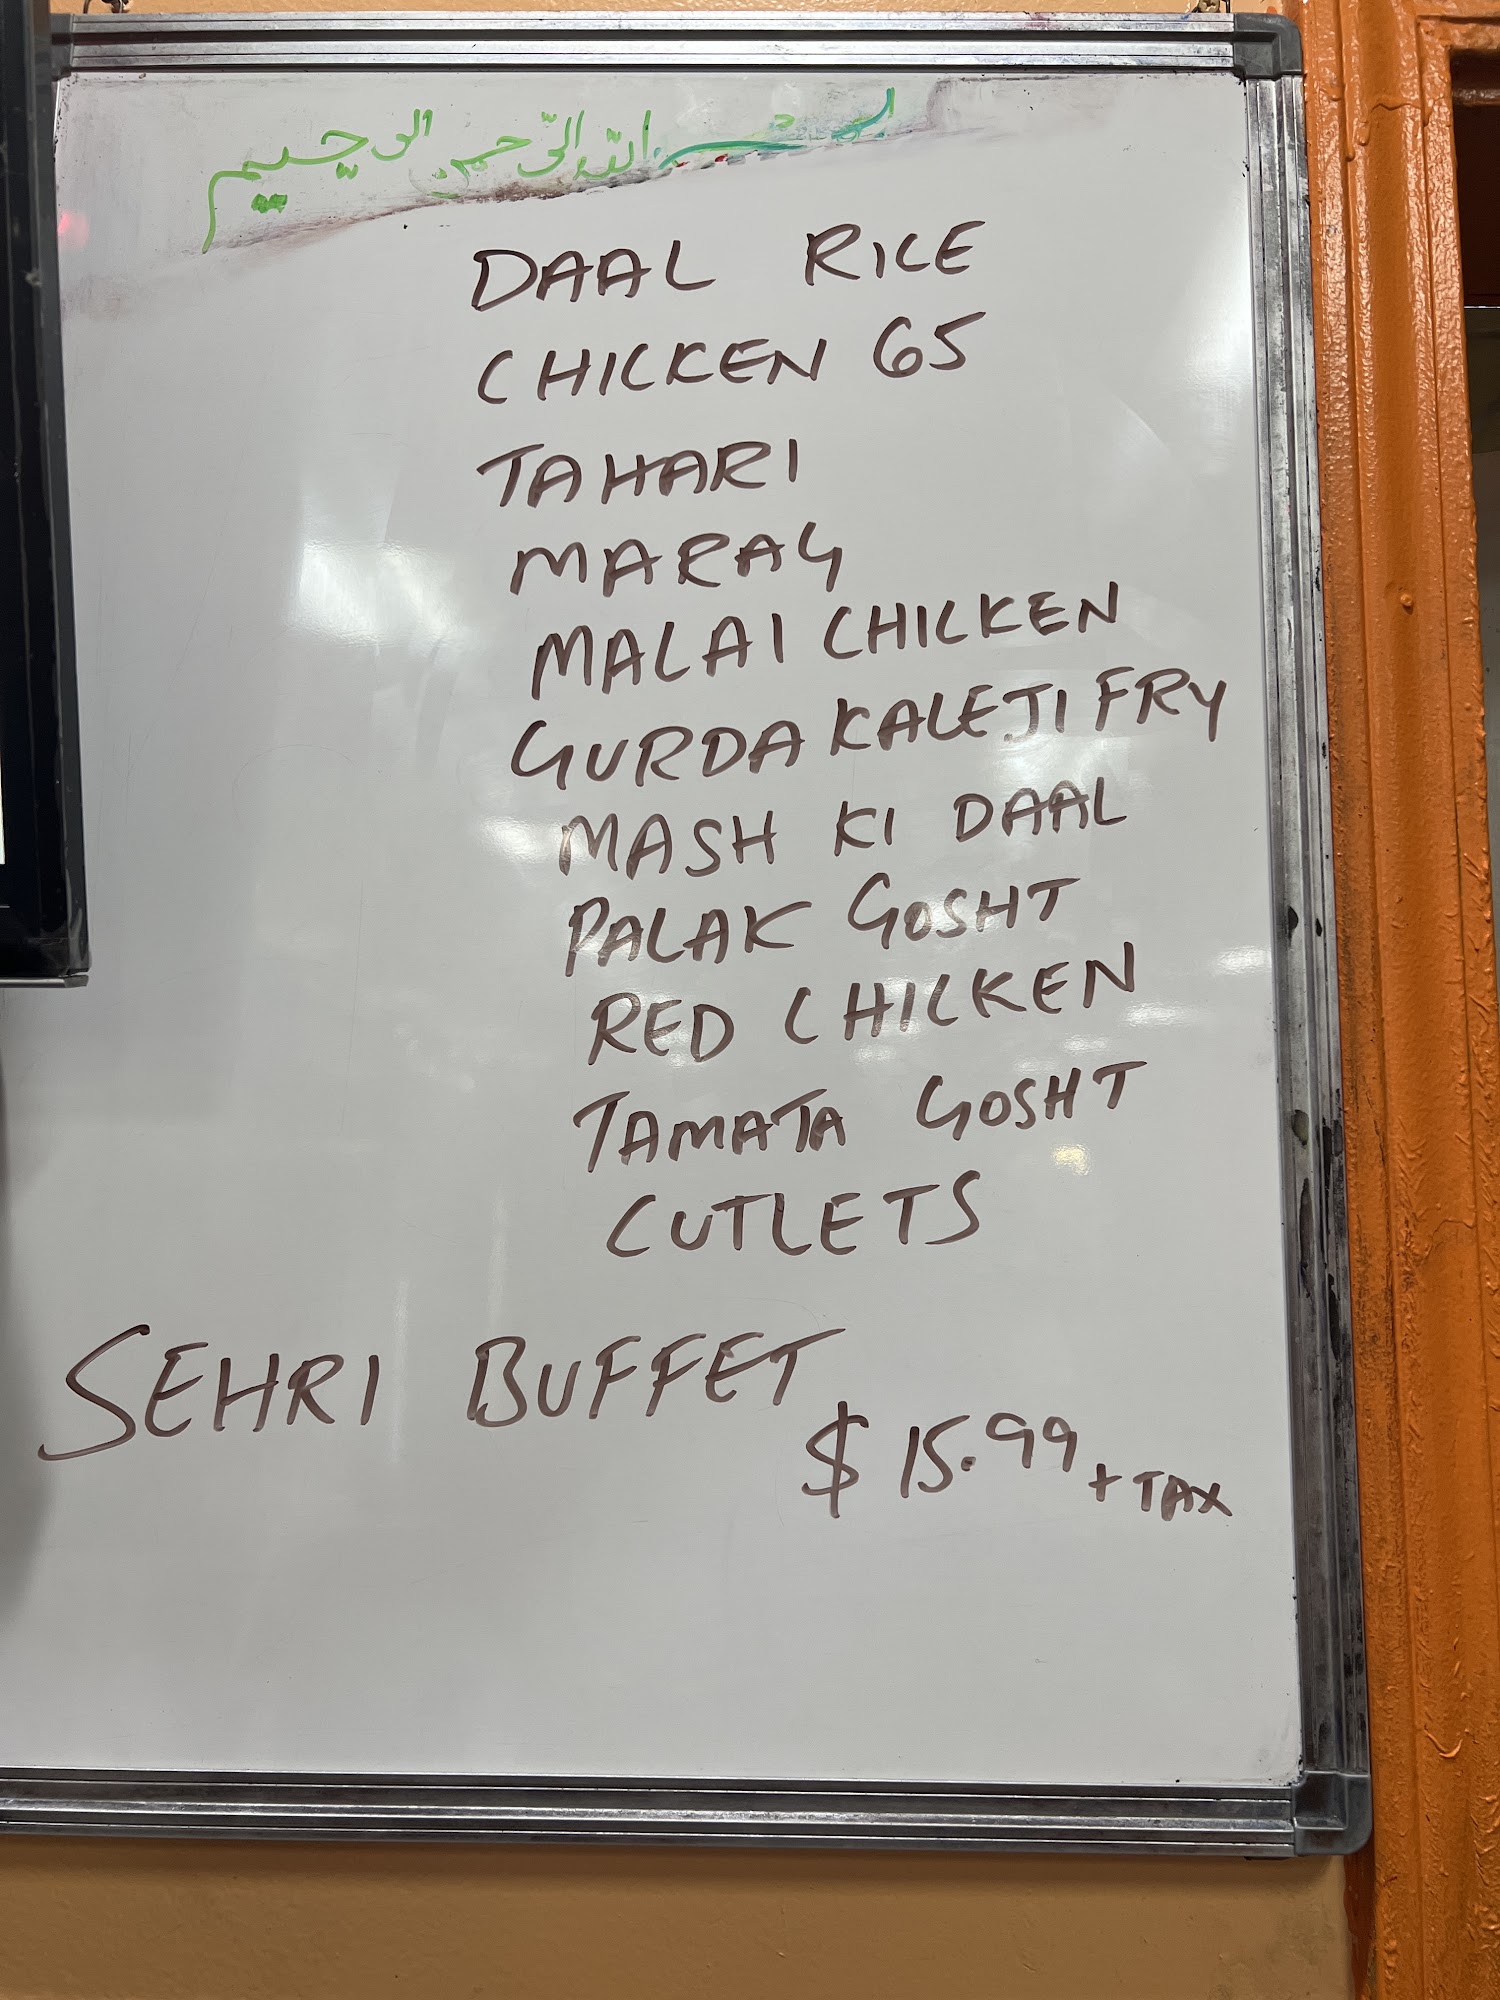 بسم الله الرّحمن الرحيم
DAAL RICE
CHICKEN 65
TAHARI
MARAG
MALAI CHICKEN
GURDA KALEJI FRY
MASH KI DAAL
PALAK GOSHT
RED CHICKEN
TAMATA GOSHT
CUTLETS
SEHRI BUFFET
$ 15.99 + TAX